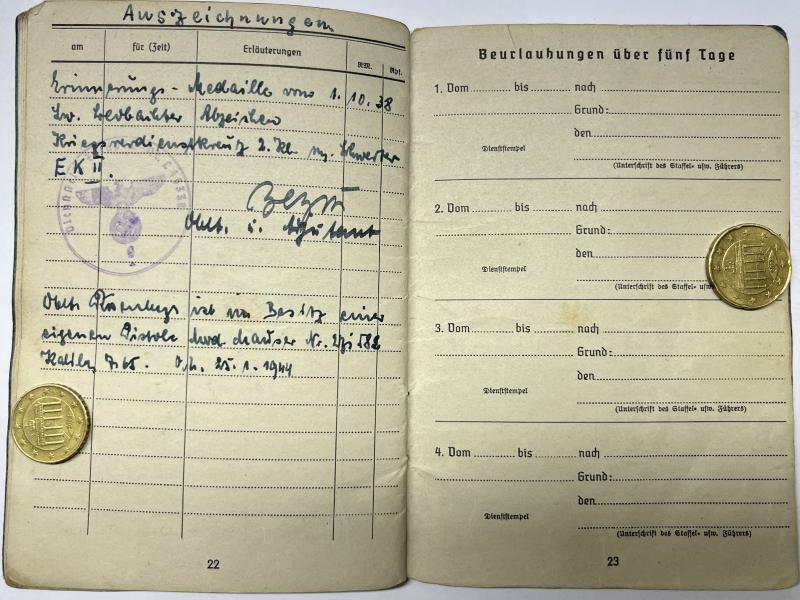 Auszeichnungen
am für (Zeit) Erläuterungen RM. Rpf.
Erinnerungs-Medaille vom 1.10.38
Lw. Beobachter Abzeichen
Kriegsverdienstkreuz 2. Kl. m. Schwerter
E K II.
Oblt. u. Adjutant
Oblt. ist im Besitz einer
eigenen Pistole Nr.
Kaliber 7.65. O.U. 25.1.1944
22
Beurlaubungen über fünf Tage
1. Vom bis nach
Grund:
den
Dienststempel
(Unterschrift des Staffel- usw. Führers)
2. Vom bis nach
Grund:
den
Dienststempel
(Unterschrift des Staffel- usw.
3. Vom bis nach
Grund:
den
Dienststempel
(Unterschrift des Staffel- usw. Führers)
4. Vom bis nach
Grund:
den
Dienststempel
(Unterschrift des Staffel- usw. Führers)
23